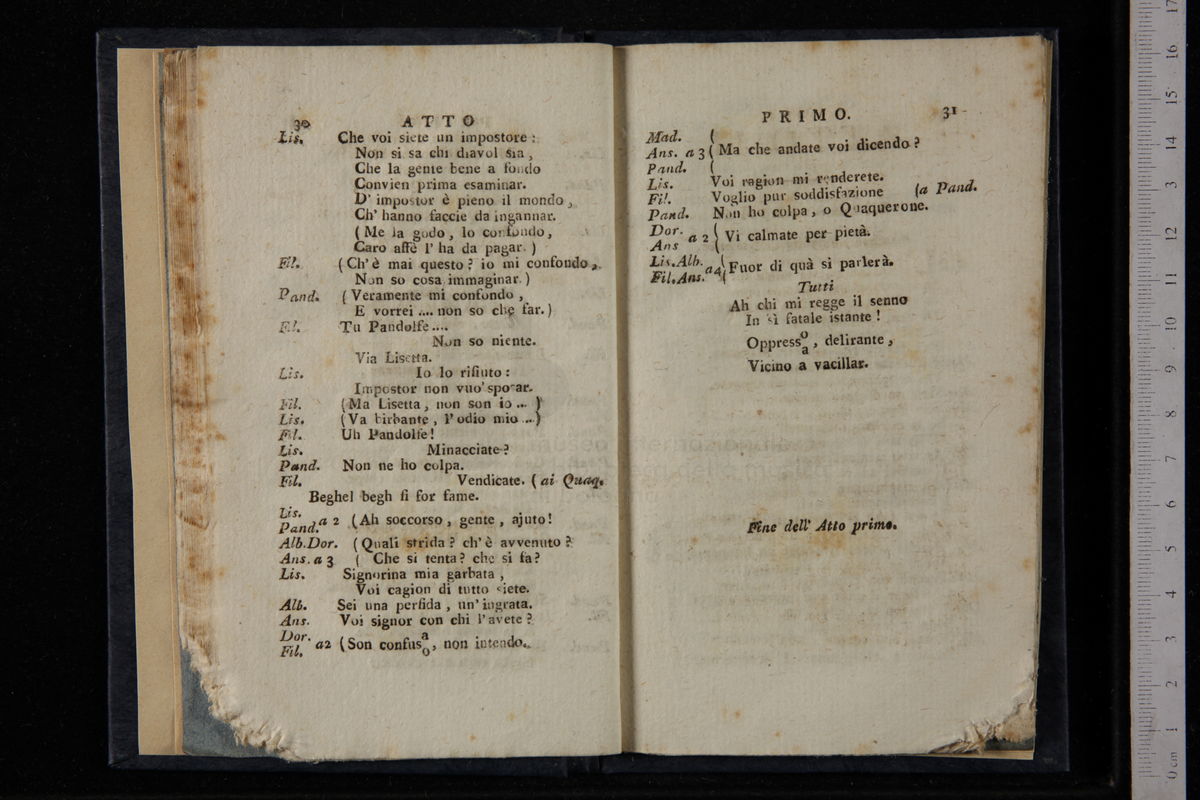 30 ATTO
Lis. Che voi siete un impostore:
Non si sa chi diavol sia,
Che la gente bene a fondo
Convien prima esaminar.
D' impostor è pieno il mondo,
Ch' hanno faccie da ingannar.
(Me la godo, lo confondo,
Caro affè l' ha da pagar.)
Fil. (Ch' è mai questo? io mi confondo,
Non so cosa immaginar.)
Pand. (Veramente mi confondo,
E vorrei .... non so che far.)
Fil. Tu Pandolfe....
Non so niente.
Via Lisetta.
Lis. Io lo rifiuto:
Impostor non vuo' sposar.
Fil. (Ma Lisetta, non son io ... )
Lis. (Va birbante, l' odio mio ...)
Fil. Uh Pandolfe!
Lis. Minacciate?
Pand. Non ne ho colpa.
Fil. Vendicate. (ai Quaq.
Beghel begh si for fame.
Lis.
Pand. a 2 (Ah soccorso, gente, ajuto!
Alb. Dor. (Quali strida? ch' è avvenuto?
Ans. a 3 ( Che si tenta? che si fa?
Lis. Signorina mia garbata,
Voi cagion di tutto siete.
Alb. Sei una perfida, un' ingrata.
Ans. Voi signor con chi l' avete?
Dor.
Fil. a2 (Son confusa/o, non intendo.
PRIMO. 31
Mad. (
Ans. a 3 ( Ma che andate voi dicendo?
Pand. (
Lis. Voi ragion mi renderete.
Fil. Voglio pur soddisfazione (a Pand.
Pand. Non ho colpa, o Quaquerone.
Dor.
Ans a 2 ( Vi calmate per pietà.
Lis. Alb.
Fil. Ans. a4 (Fuor di quà si parlerà.
Tutti
Ah chi mi regge il senno
In sì fatale istante!
Oppresso/a, delirante,
Vicino a vacillar.
Fine dell' Atto primo.